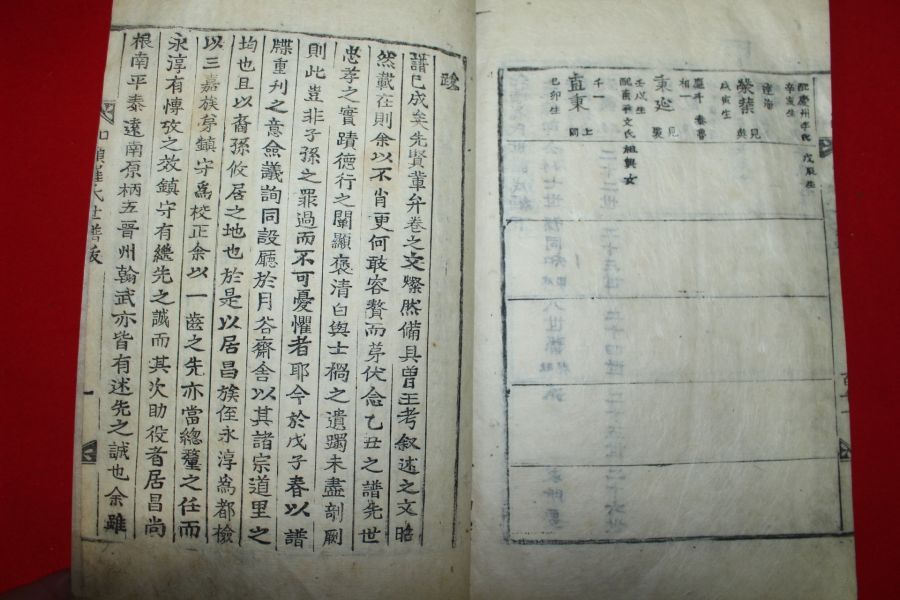 配慶州李氏 戊辰生
辛亥生
達海
見
戊寅生
相一
應斗 泰魯
東延 見
壬戌生
配南平文氏 祖興女
千一
直東 上 同
己卯生
跋
譜已成矣先賢輩弁卷之文燦然備具曽王考叙述之文昭
然載在則余以不肖更何敢容贅而苐伏念乙丑之譜先世
忠孝之實蹟德行之闡顯褒清白與士禍之遺躅未盡剖劂
則此豈非子孫之罪過而不可憂懼者耶今於戊子春以譜
牒重刋之意僉議詢同設廳於月谷齋舍以其諸宗道里之
均也且以裔孫攸居之地也於是以居昌族侄永淳爲都檢
以三嘉族夢鎮守爲校正余以一齒之先亦當總釐之任而
永淳有慱攷之效鎮守有繼先之誠而其次助役者居昌尚
根南平泰遠南原柄五晋州翰武亦皆有述先之誠也余雖
和順崔氏世譜跋 一